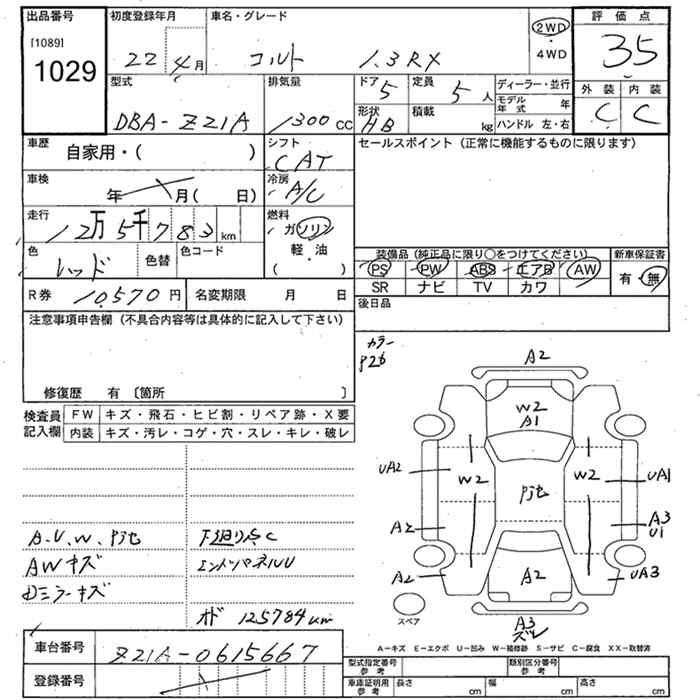 出品番号 初度登録年月 車名・グレード 評価点
[1089]
1029
22年4月 コルト 1.3RX
2WD
・4WD
35
外装 内装
C C
型式 排気量 ドア 定員 ディーラー・並行
DBA-Z21A 1300cc 5 5人
形状 積載 モデル年式 年
HB kg ハンドル 左・右
車歴 自家用・( ) シフト CAT
セールスポイント(正常に機能するものに限ります)
車検 年 月( 日) 冷房 A/C
走行 12万5千783km
燃料 ガソリン
軽・油
( )
色 レッド 色替 色コード
装備品(純正品に限り○をつけてください) 新車保証書
PS PW ABS エアB AW 有・無
SR ナビ TV カワ
R券 10,570円 名変期限 月 日
後日品
注意事項申告欄(不具合内容等は具体的に記入して下さい)
修復歴 有〔箇所 〕
カラー
P26
検査員記入欄 FW キズ・飛石・ヒビ割・リペア跡・X要
内装 キズ・汚レ・コゲ・穴・スレ・キレ・破レ
A2
W2
A1
UA2 W2 W2 UA1
A2 A3
U1
A2 A2 UA3
スペア
A3
ズレ
A.U.W. 下廻り点C
AWキズ エンドパネルU
Dミラーキズ
オド 125784km
A-キズ E-エクボ U-凹み W-補修跡 S-サビ C-腐食 XX-取替済
車台番号 Z21A-0615667
登録番号
型式指定番号 参考 類別区分番号 参考
車庫証明用 参考 長さ cm 幅 cm 高さ cm